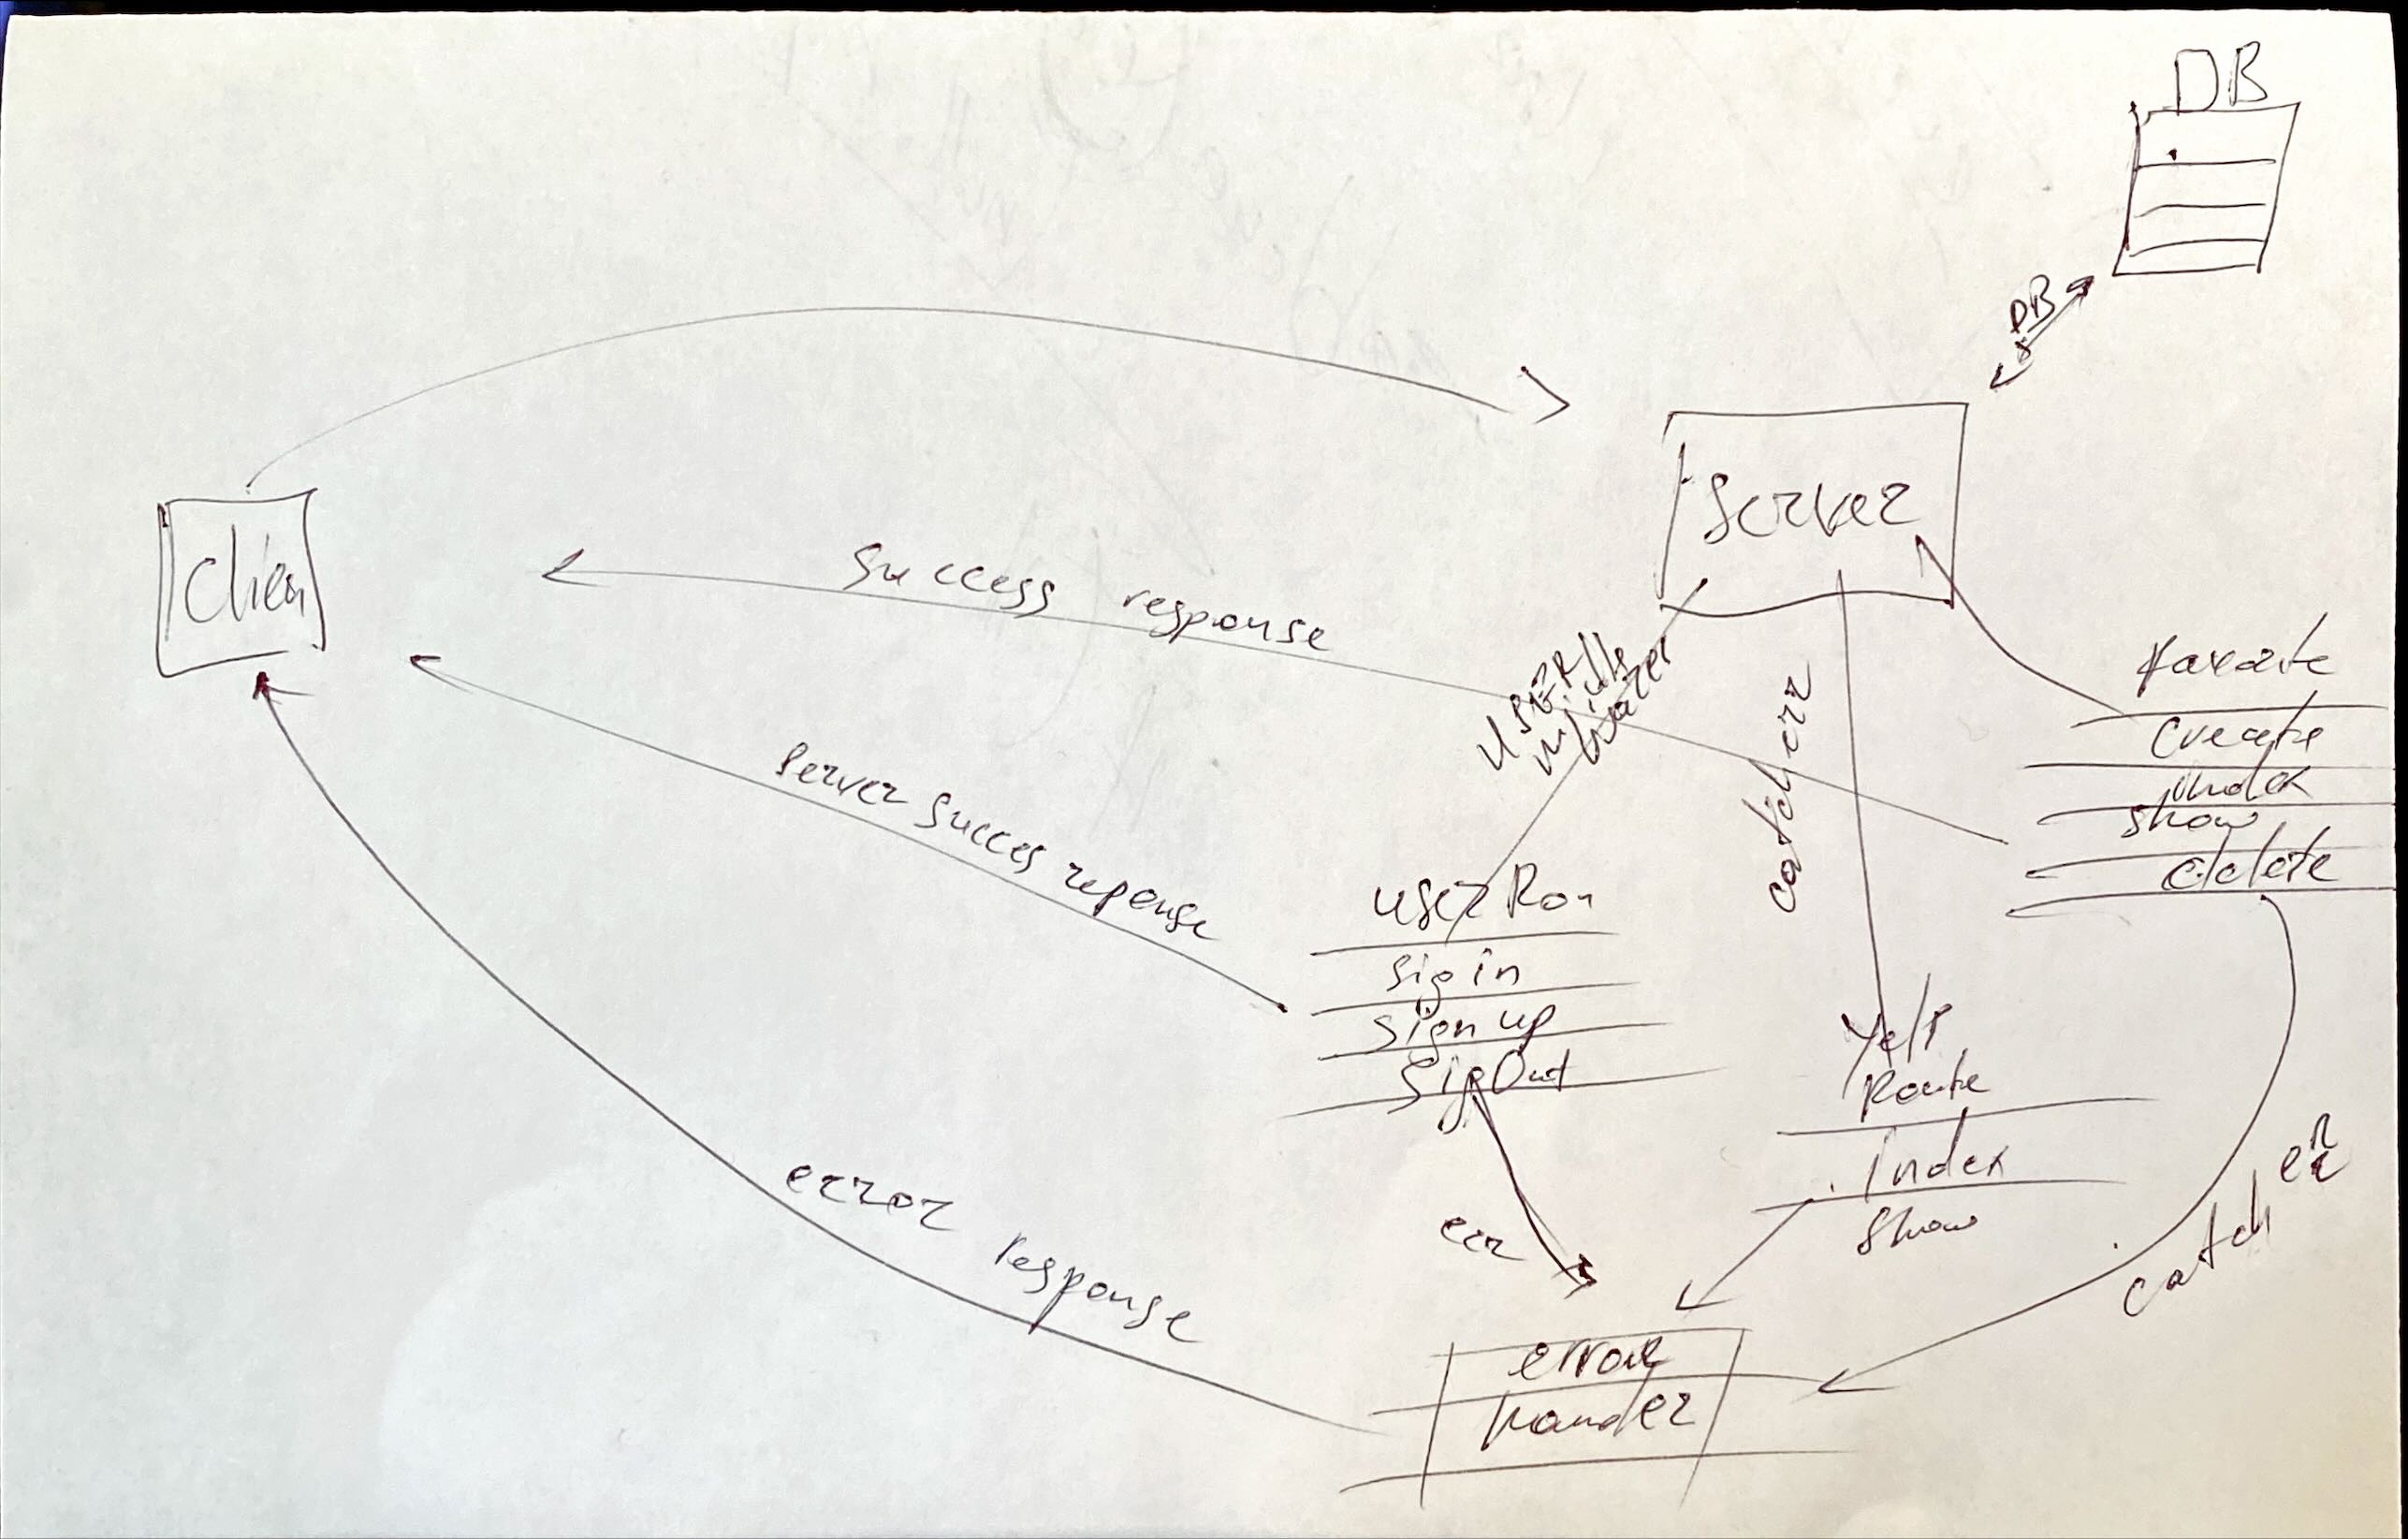 DB
DB
Server
Clien
Success response
Server succes reponse
error response
catch err
favorite
create
index
show
delete
User Rou
Sig in
Sign up
SigOut
Yelp
Route
Index
Show
err
catch err
error
hander